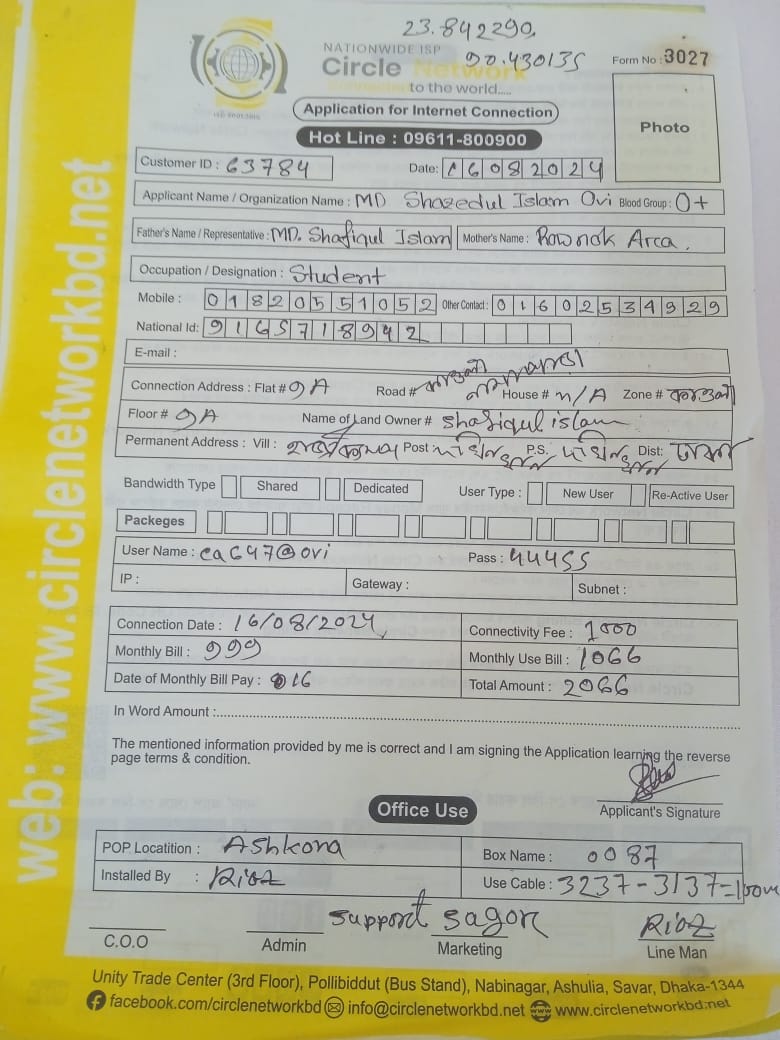 23.842290,
90.430135
NATIONWIDE ISP
Circle Network
Connecting to the world.....
ISO 9001:2015
Form No : 3027
Application for Internet Connection
Photo
Hot Line : 09611-800900
Customer ID : 63784 Date: 16082024
Applicant Name / Organization Name : MD Shazedul Islam Ovi Blood Group : O+
Father's Name / Representative : MD. Shafiqul Islam Mother's Name : Rownok Arca.
Occupation / Designation : Student
Mobile : 01820551052 Other Contact : 01602534929
National Id: 9165718942
E-mail :
Connection Address : Flat # 9A Road # House # n/A Zone # কাওলা
Floor # 9A Name of Land Owner # shafiqul islam
Permanent Address : Vill : Post P.S. Dist: ঢাকা
Bandwidth Type Shared Dedicated User Type : New User Re-Active User
Packeges
User Name : ca647@ovi Pass : 44455
IP : Gateway : Subnet :
Connection Date : 16/08/2024, Connectivity Fee : 1000
Monthly Bill : 999 Monthly Use Bill : 1066
Date of Monthly Bill Pay : 16 Total Amount : 2066
In Word Amount :
The mentioned information provided by me is correct and I am signing the Application learning the reverse
page terms & condition.
Applicant's Signature
Office Use
POP Locatition : Ashkona Box Name : 0087
Installed By : Riaz Use Cable : 3237-3137=100m
support sagor Riaz
C.O.O Admin Marketing Line Man
Unity Trade Center (3rd Floor), Pollibiddut (Bus Stand), Nabinagar, Ashulia, Savar, Dhaka-1344
facebook.com/circlenetworkbd info@circlenetworkbd.net www.circlenetworkbd.net
web: www.circlenetworkbd.net